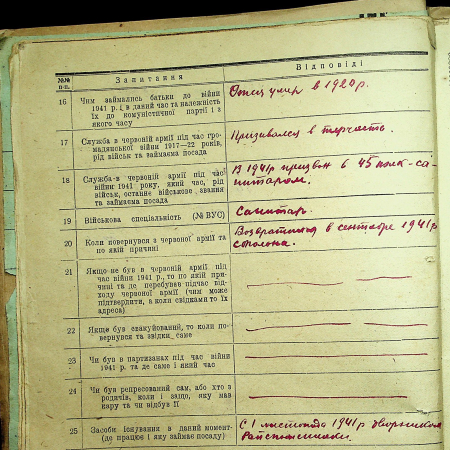 №№ п.п.
Запитання
Відповіді
16
Чим займались батьки до війни
1941 р. і в даний час та належність
їх до комуністичної партії і з
якого часу
Отец умер в 1920 г.
17
Служба в червоній армії під час гро-
мадянської війни 1917—22 років,
рід військ та займаєма посада
Призывался в
18
Служба в червоній армії під час
війни 1941 року, який час, рід
військ, останнє військове звання
та займаєма посада
В 1941 г призван в 45 полк-са-
нитаром.
19
Військова спеціяльність (№ ВУС)
Санитар.
20
Коли повернувся з червоної армії та
по якій причині
Возвратился в сентябре 1941 г
с полона.
21
Якщо не був в червоній армії під
час війни 1941 р., то по якій при-
чині та де перебував підчас від-
ходу червоної армії (чим може
підтвердити, а коли свідками то їх
адреса)
22
Якще був евакуйований, то коли по-
вернувся та звідки саме
23
Чи був в партизанах під час війни
1941 р. та де саме і який час
24
Чи був репресований сам, або хто з
родичів, коли і защо, яку мав
кару та чи відбув її
25
Засоби існування в даний момент
(де працює і яку займає посаду)
С 1 листопада 1941 р дворником